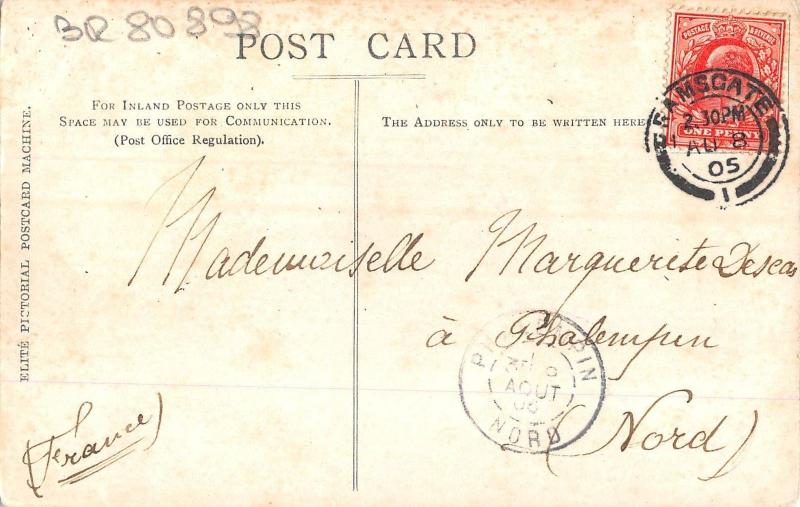 BR 80893
POST CARD
FOR INLAND POSTAGE ONLY THIS
SPACE MAY BE USED FOR COMMUNICATION.
(Post Office Regulation).
THE ADDRESS ONLY TO BE WRITTEN HERE
ELITÉ PICTORIAL POSTCARD MACHINE.
POSTAGE & REVENUE
ONE PENNY
RAMSGATE
2 30PM
AU 8
05
1
Mademoiselle Marguerite Descas
à Phalempin
AOUT
NORD
(Nord)
(France)